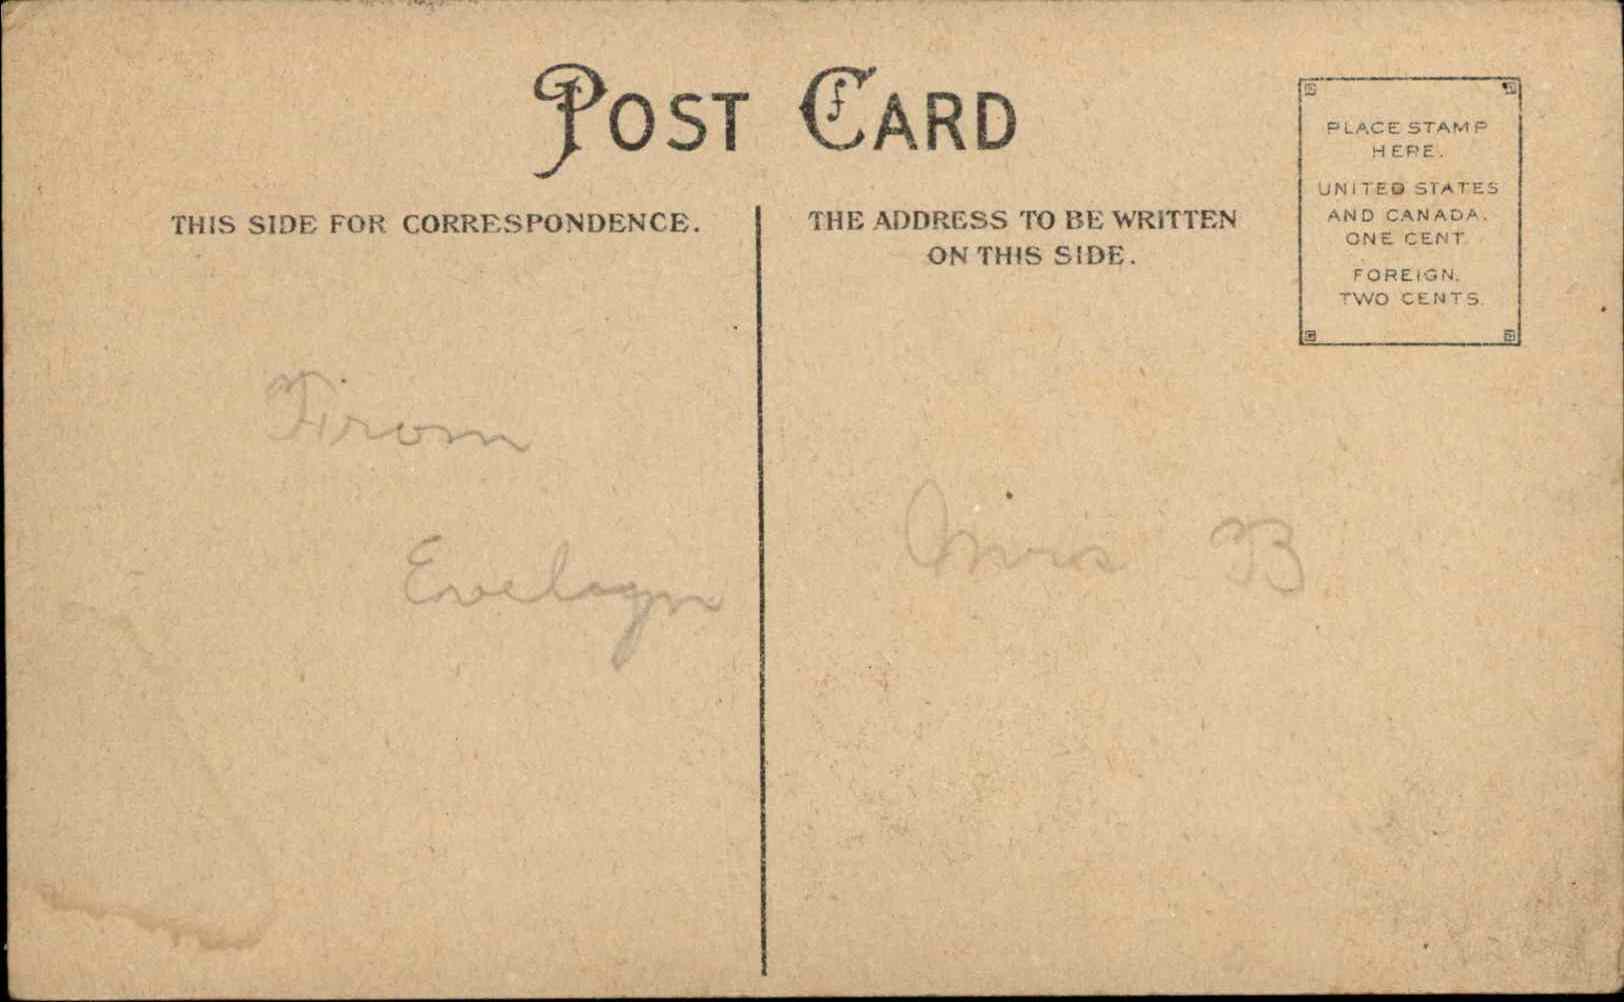 POST CARD
THIS SIDE FOR CORRESPONDENCE.
THE ADDRESS TO BE WRITTEN
ON THIS SIDE.
PLACE STAMP
HERE.
UNITED STATES
AND CANADA.
ONE CENT
FOREIGN.
TWO CENTS.
From
Evelyn
B